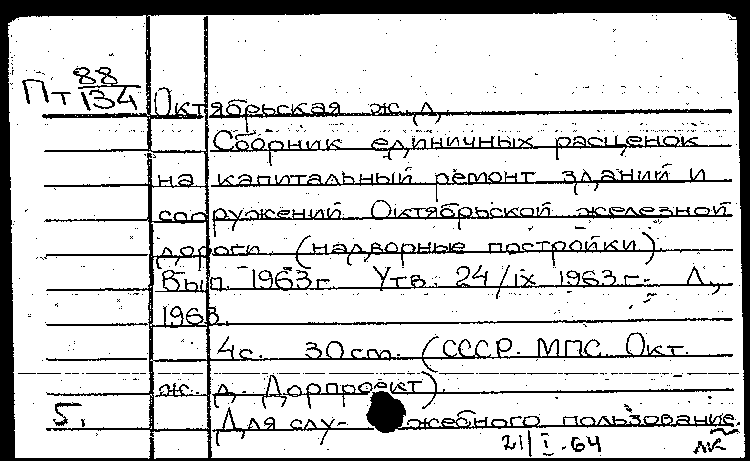 Пт 88/134 Октябрьская ж.д.
Сборник единичных расценок
на капитальный ремонт зданий и
сооружений Октябрьской железной
дороги (надворные постройки).
Вып. 1963г. Утв. 24/IX 1963.г. Л.,
1963.
4с. 30см. (СССР. МПС. Окт.
ж. д. Дорпроект).
5. Для слу- жебного пользование.
21/I-64